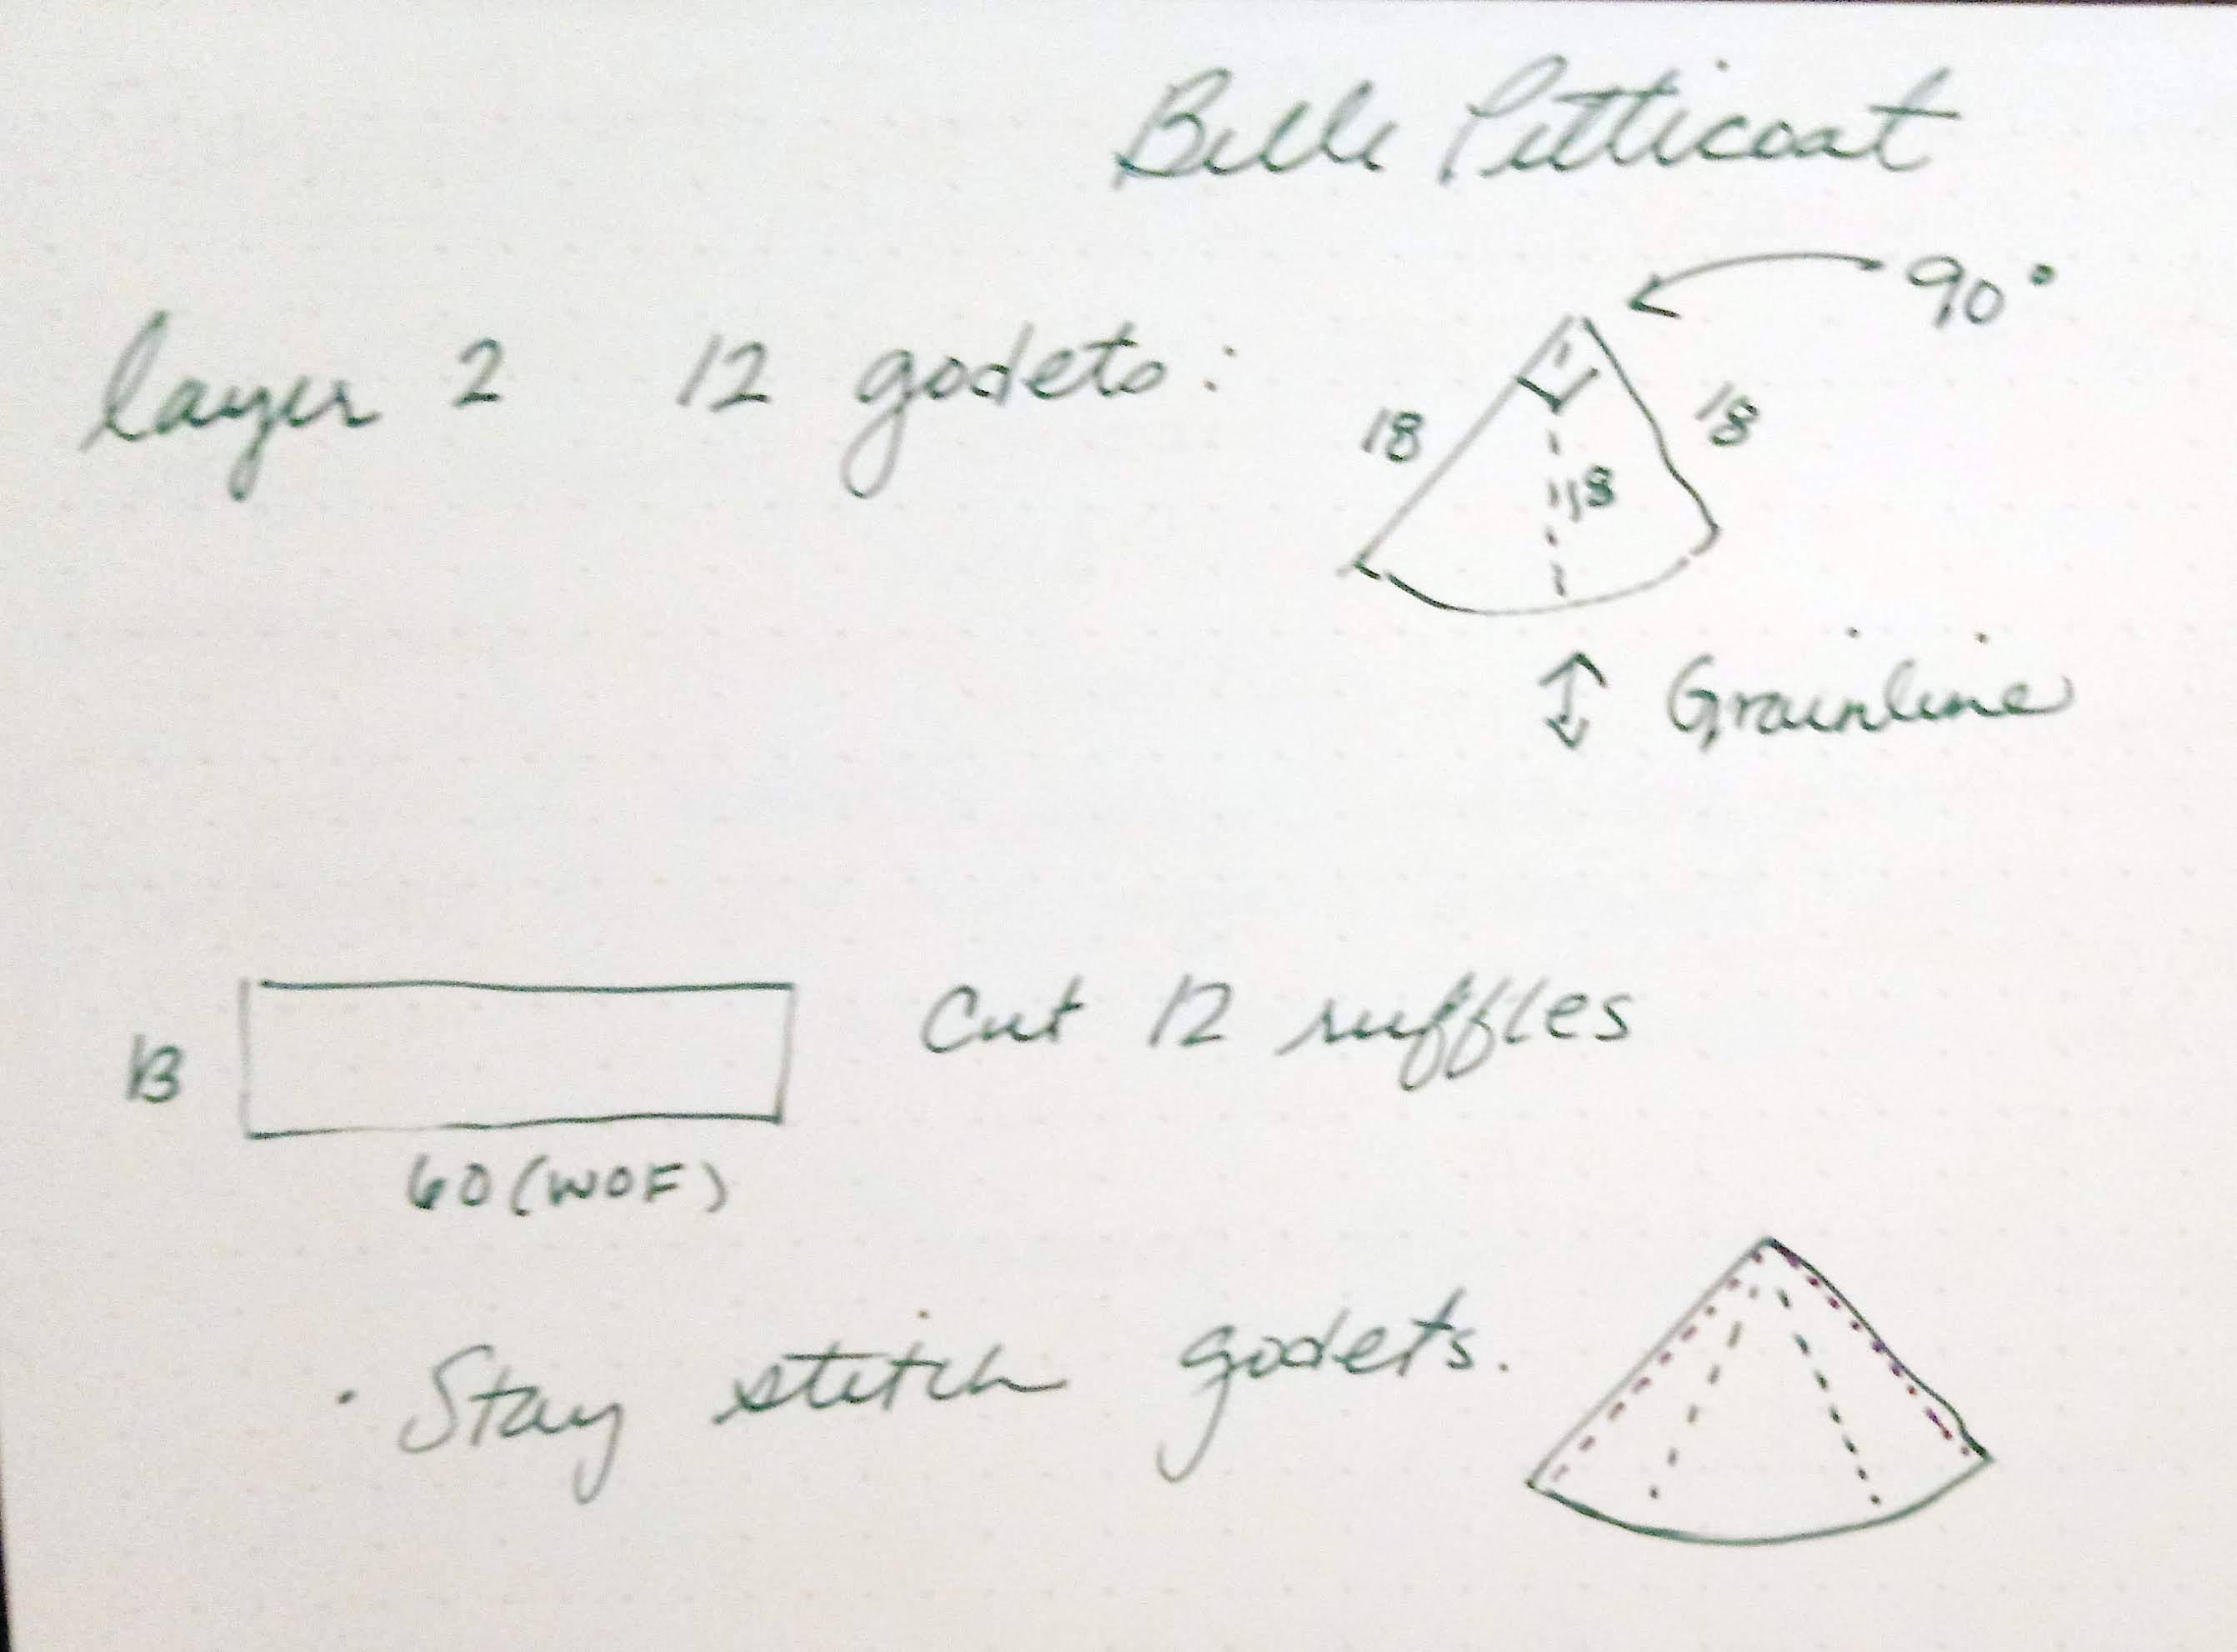 Belle Petticoat
90°
layer 2 12 godets:
18 18
18
Grainline
13
Cut 12 ruffles
60 (WOF)
· Stay stitch godets.